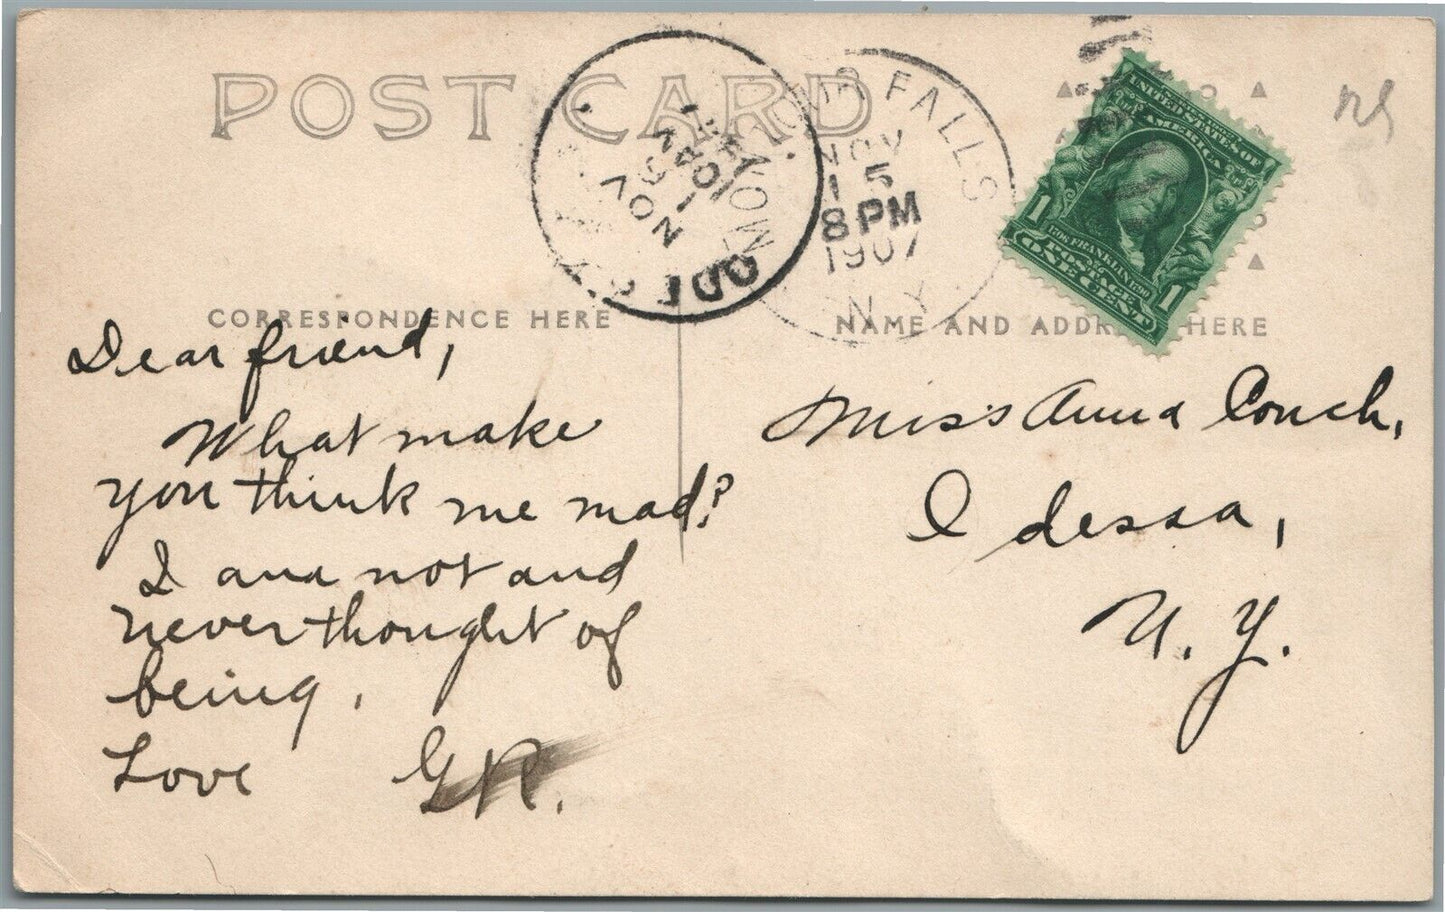 POST CARD
MONTOUR FALLS
NOV
15
8 PM
1907
N.Y.
ODESSA
NOV
10 AM
UNITED STATES OF
AMERICA
1 1
1706 FRANKLIN 1790
POSTAGE
ONE CENT
CORRESPONDENCE HERE
Dear friend,
What make
you think me mad?
I am not and
never thought of
being.
Love G R.
NAME AND ADDRESS HERE
Miss Anna Couch,
Odessa,
N. Y.